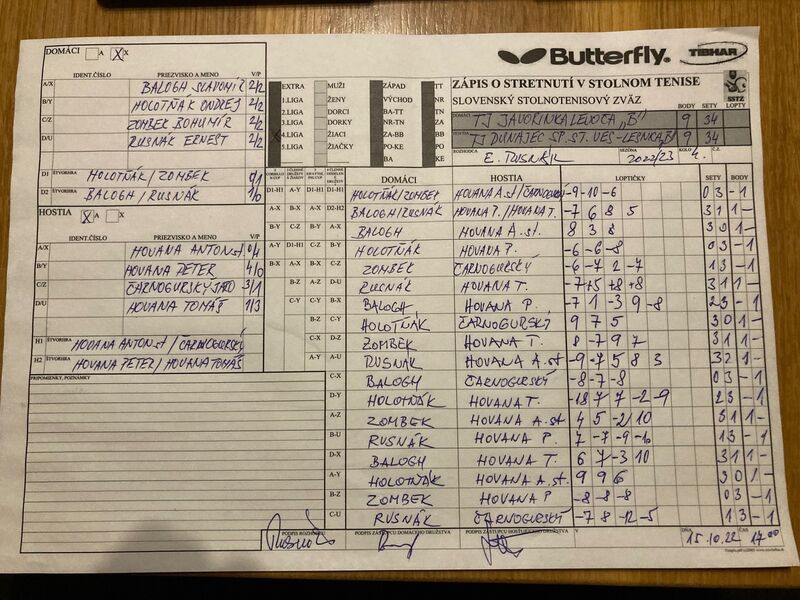 DOMÁCI A X X
IDENT.ČÍSLO PRIEZVISKO A MENO V/P
A/X BALOGH SLAVOMÍR 2/2
B/Y HOLOTŇÁK ONDREJ 2/2
C/Z ZOMBEK BOHUMÍR 2/2
D/U RUSNÁK ERNEST 2/2
D1 ŠTVORHRA HOLOTŇÁK/ZOMBEK 0/1
D2 ŠTVORHRA BALOGH/RUSNÁK 1/0
HOSTIA X A X
IDENT.ČÍSLO PRIEZVISKO A MENO V/P
A/X HOVANA ANTON st 0/4
B/Y HOVANA PETER 4/0
C/Z ČARNOGURSKÝ 3/1
D/U HOVANA TOMÁŠ 1/3
H1 ŠTVORHRA HOVANA ANTON st / ČARNOGURSKÝ
H2 ŠTVORHRA HOVANA PETER / HOVANA TOMÁŠ
PRIPOMIENKY, POZNÁMKY
EXTRA
1.LIGA
2.LIGA
3.LIGA
4.LIGA
5.LIGA
MUŽI
ŽENY
DORCI
DORKY
ŽIACI
ŽIAČKY
ZÁPAD TT
VÝCHOD NR
BA-TT TN
NR-TN ZA
ZA-BB BB
PO-KE PO
BA KE
Butterfly. TIBHAR
ZÁPIS O STRETNUTÍ V STOLNOM TENISE
SLOVENSKÝ STOLNOTENISOVÝ ZVÄZ SSTZ
BODY SETY
DOMÁCI TJ JAVORINKA LEVOČA „B" 9 34
HOSTIA TJ DUNAJEC SP. ST. VES - LESNICA „B" 9 34
ROZHODCA E. RUSNÁK SEZÓNA 2022/23 KOLO 4. Č.Z.
DOMÁCI HOSTIA LOPTIČKY SETY BODY
D1-H1 HOLOTŇÁK/ZOMBEK HOVANA A.st/ČARNOGURSKÝ -9 -10 -6 0 3 - 1
D2-H2 BALOGH/RUSNÁK HOVANA P./HOVANA T. -7 6 8 5 3 1 1 -
A-X BALOGH HOVANA A.st. 8 3 8 3 0 1 -
B-Y HOLOTŇÁK HOVANA P. -6 -6 -8 0 3 - 1
C-Z ZOMBEK ČARNOGURSKÝ -6 -7 2 -7 1 3 - 1
D-U RUSNÁK HOVANA T. -7 +5 +8 +8 3 1 1 -
B-X BALOGH HOVANA P. -7 1 -3 9 -8 2 3 - 1
C-Y HOLOTŇÁK ČARNOGURSKÝ 9 7 5 3 0 1 -
D-Z ZOMBEK HOVANA T. 8 -7 9 7 3 1 1 -
A-U RUSNÁK HOVANA A.st -9 -7 5 8 3 3 2 1 -
C-X BALOGH ČARNOGURSKÝ -8 -7 -8 0 3 - 1
D-Y HOLOTŇÁK HOVANA T. -18 7 7 -2 -9 2 3 - 1
A-Z ZOMBEK HOVANA A.st 4 5 -2 10 3 1 1 -
B-U RUSNÁK HOVANA P. 7 -7 -9 -6 1 3 - 1
D-X BALOGH HOVANA T. 6 7 -3 10 3 1 1 -
A-Y HOLOTŇÁK HOVANA A.st. 9 9 6 3 0 1 -
B-Z ZOMBEK HOVANA P -8 -8 -8 0 3 - 1
C-U RUSNÁK ČARNOGURSKÝ -7 8 -12 -5 1 3 - 1
PODPIS ROZHODCU PODPIS ZÁSTUPCU DOMÁCEHO DRUŽSTVA PODPIS ZÁSTUPCU HOSŤUJÚCEHO DRUŽSTVA V DŇA 15.10.22 ČAS 17.00